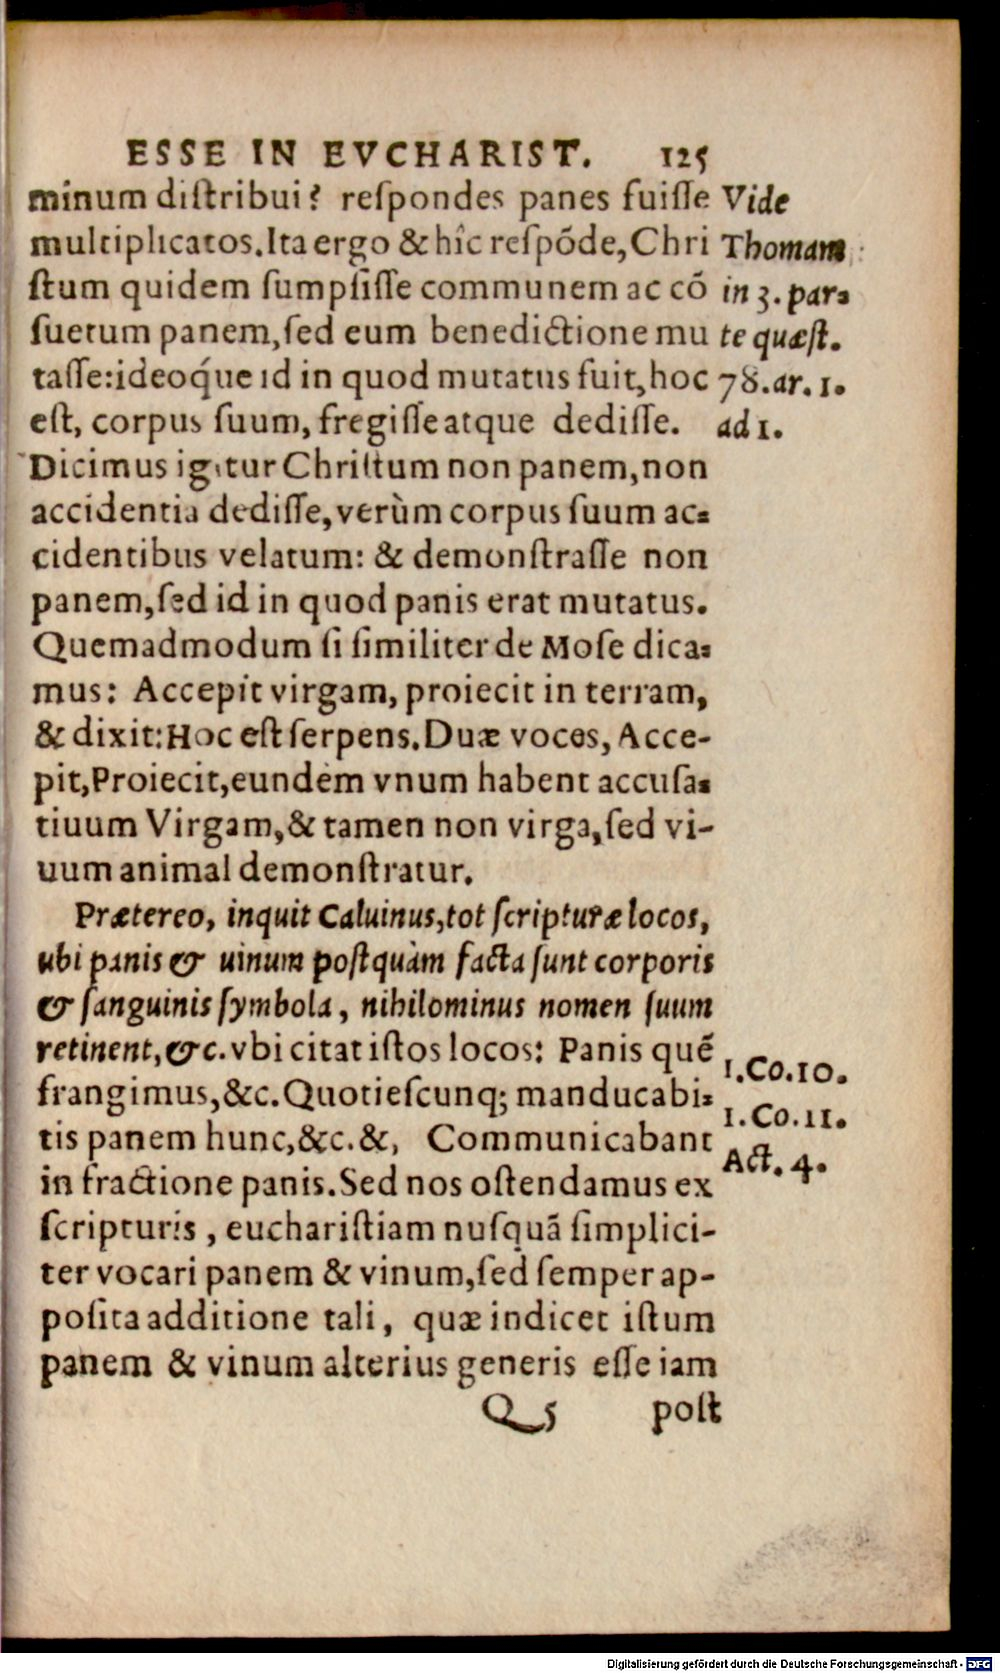 ESSE IN EVCHARIST. 125
minum diſtribui? reſpondes panes fuiſſe
multiplicatos. Ita ergo & hîc reſpōde, Chri
ſtum quidem ſumpſiſſe communem ac cō
ſuetum panem, ſed eum benedictione mu
taſſe: ideoq́ue id in quod mutatus fuit, hoc
eſt, corpus ſuum, fregiſſe atque dediſſe.
Dicimus igitur Chriſtum non panem, non
accidentia dediſſe, verùm corpus ſuum ac=
cidentibus velatum: & demonſtraſſe non
panem, ſed id in quod panis erat mutatus.
Quemadmodum ſi ſimiliter de Moſe dica=
mus: Accepit virgam, proiecit in terram,
& dixit: Hoc eſt ſerpens. Duæ voces, Acce-
pit, Proiecit, eundem vnum habent accuſa=
tiuum Virgam, & tamen non virga, ſed vi-
uum animal demonſtratur.
Prætereo, inquit Caluinus, tot ſcripturæ locos,
ubi panis & uinum poſtquàm facta ſunt corporis
& ſanguinis ſymbola, nihilominus nomen ſuum
retinent, &c. vbi citat iſtos locos: Panis quē
frangimus, &c. Quotieſcunq; manducabi=
tis panem hunc, &c. &, Communicabant
in fractione panis. Sed nos oſtendamus ex
ſcripturis, euchariſtiam nuſquā ſimplici-
ter vocari panem & vinum, ſed ſemper ap-
poſita additione tali, quæ indicet iſtum
panem & vinum alterius generis eſſe iam
Q 5 poſt
Vide
Thomam
in 3. par=
te quæſt.
78. ar. 1.
ad 1.
1. Co. 10.
1. Co. 11.
Act. 4.
Digitalisierung gefördert durch die Deutsche Forschungsgemeinschaft - DFG